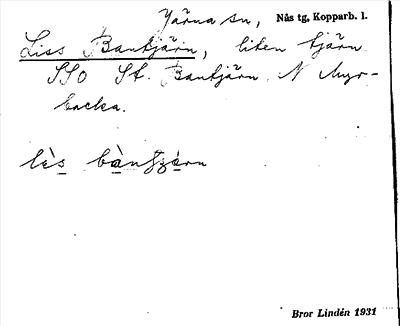 Järna sn, Nås tg, Kopparb. l.
Liss Bantjärn, liten tjärn
SSO St. Bantjärn N Myr-
backa.
Bror Lindén 1931